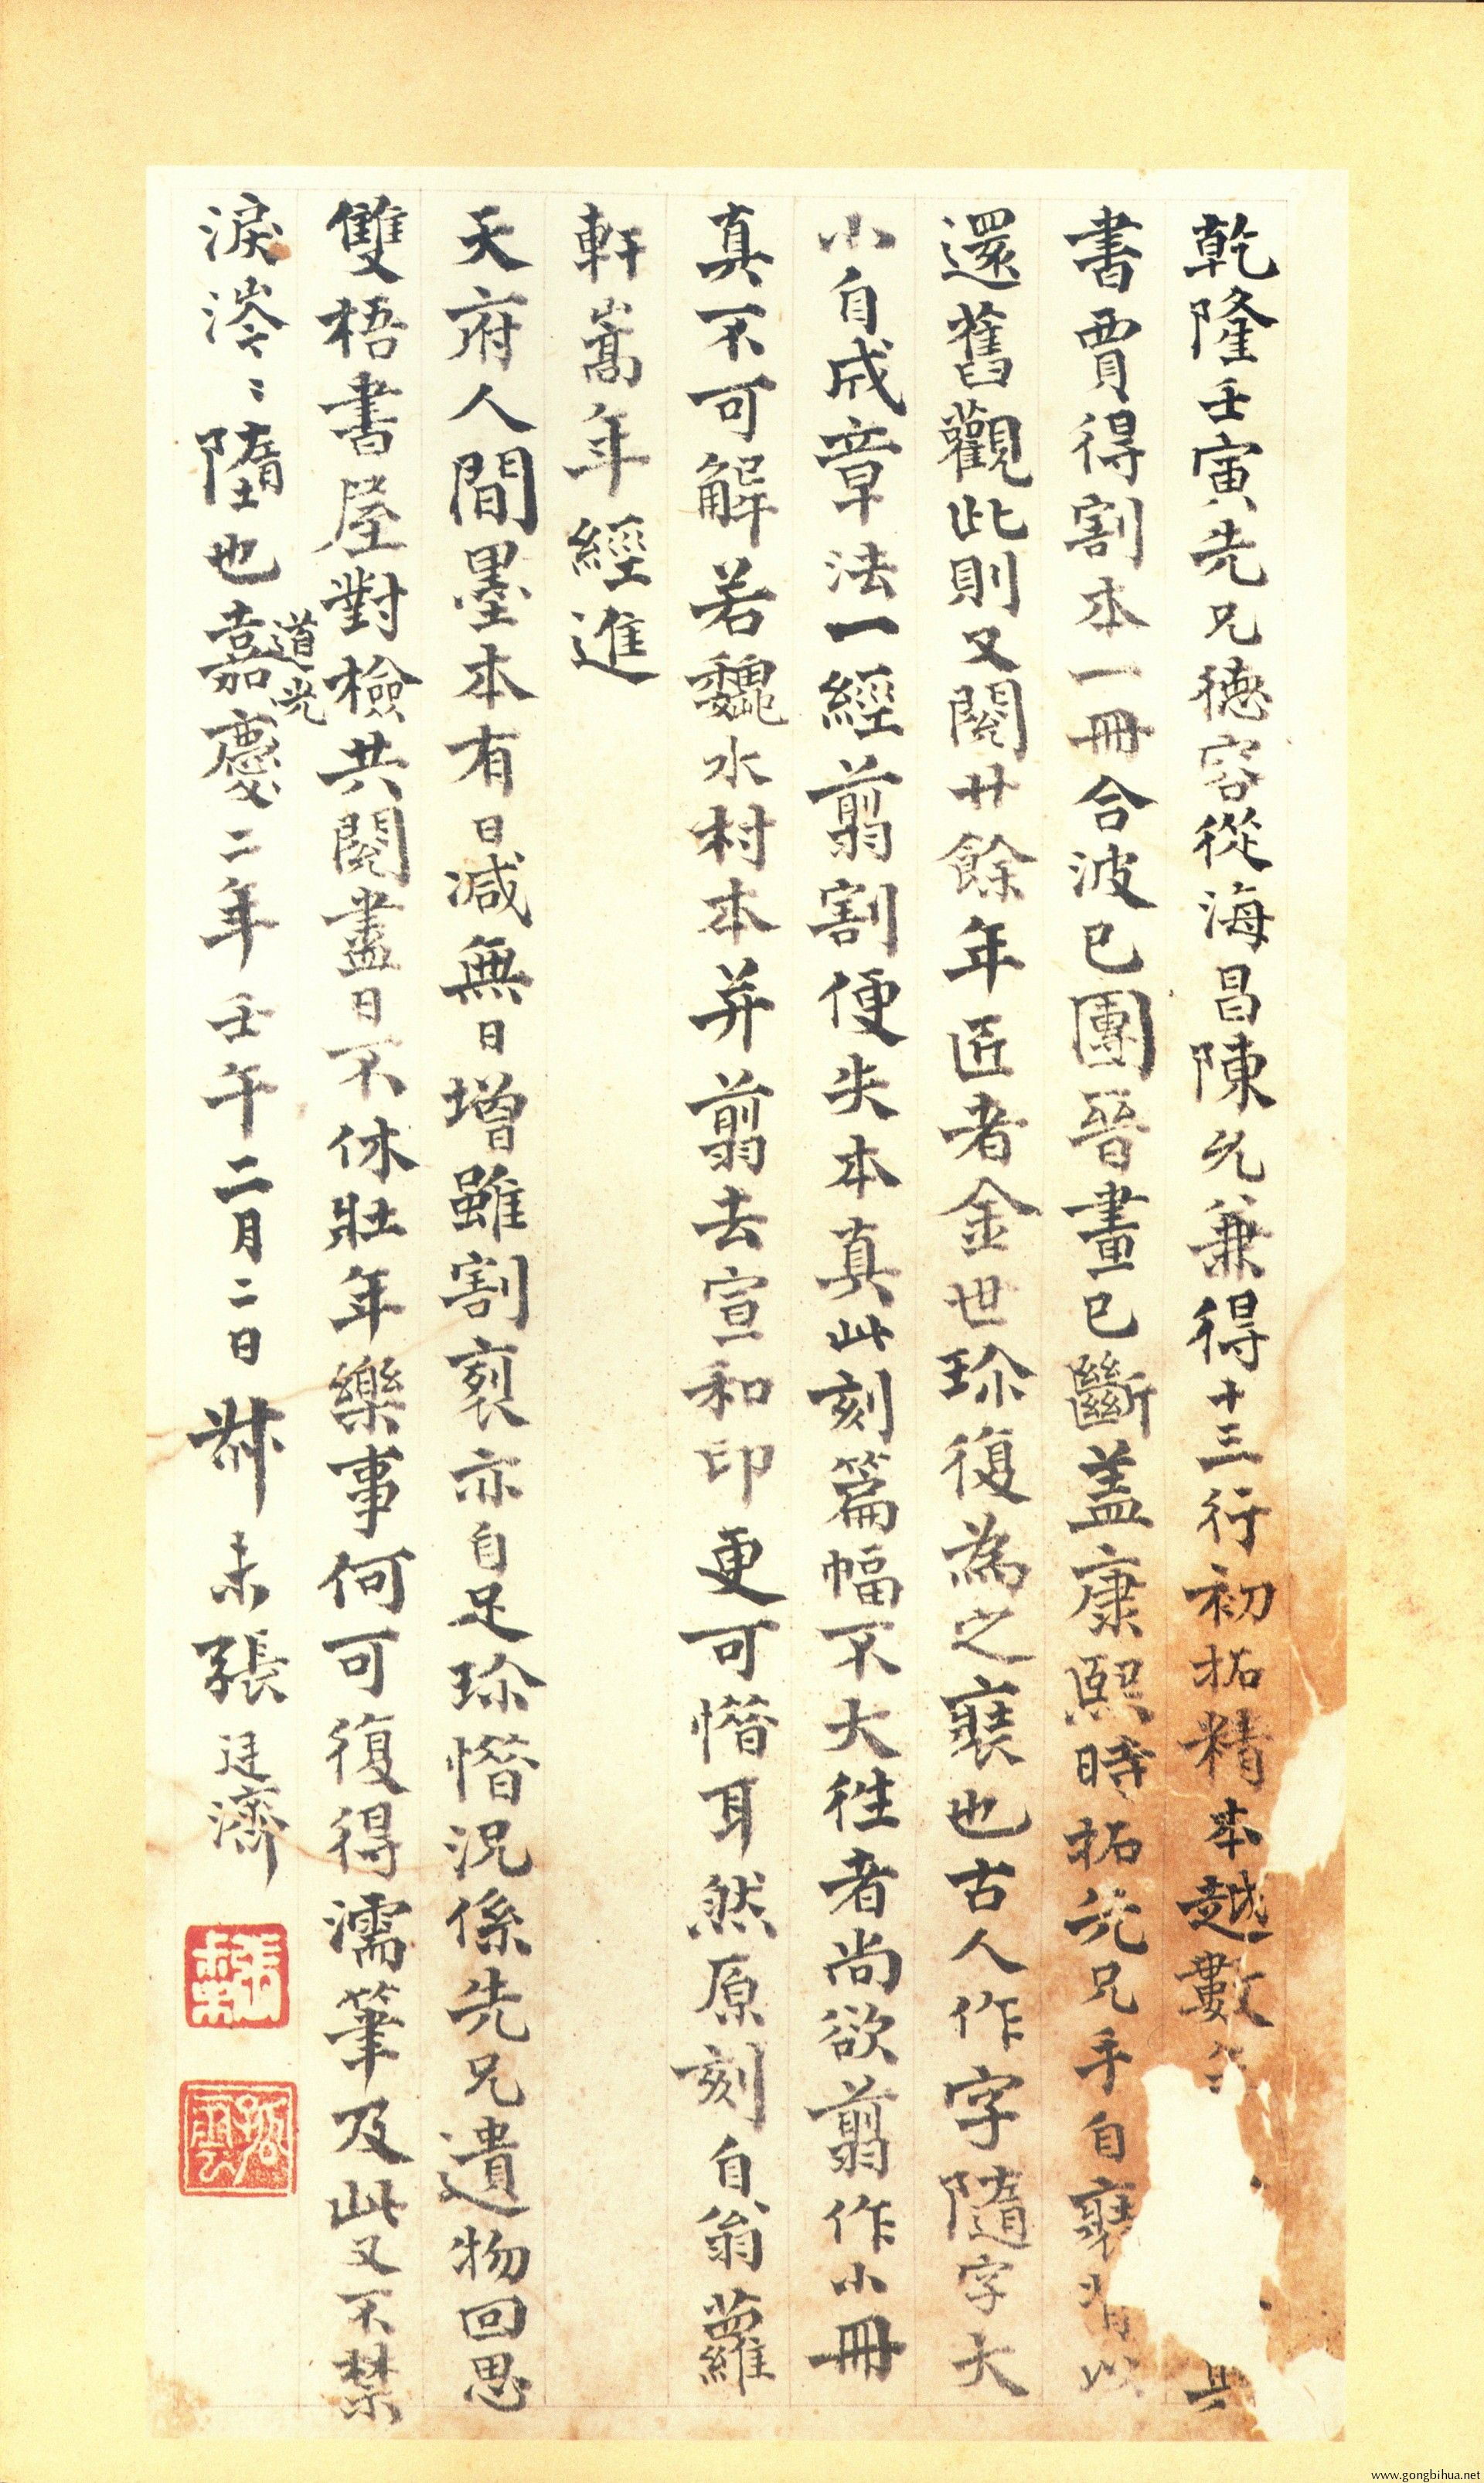 乾隆壬寅先兄德容從海昌陳氏兼得十三行初拓精本越數具
書賈得割本一冊合波已團晉畫已斷蓋康熙時拓先兄手自裝
還舊觀此則又閱廿餘年匠者金世珎復為之裝也古人作字隨字大
小自成章法一經翦割便失本真此刻篇幅不大徃者尚欲翦作小冊
真不可解若魏水村本并翦去宣和印更可惜耳然原刻自翁蘿
軒嵩年經進
天府人間墨本有日減無日增雖割裂亦自足珎惜況係先兄遺物回思
雙梧書屋對檢共閱盡日不休壯年樂事何可復得濡筆及此又不禁
淚涔〻墮也嘉慶二年壬午二月二日尗未張廷濟
道光
www.gongbihua.net